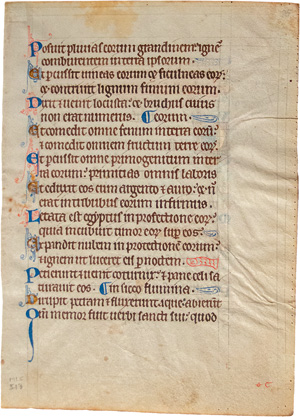 Posuit pluvias eorum grandinem: ignē
comburentem in terra ipsorum.
Et percussit vineas eorum et ficulneas eoȝ:
et contrivit lignum finium eorum.
Dixit et venit locusta: et bruchus cuius
non erat numerus. Et
comedit omne fenum in terra eorū:
et comedit omnem fructum terre eoȝ.
Et percussit omne primogenitum in ter
ra eorum: primitias omnis laboris
Et eduxit eos cum argento et auro: et nō
erat in tribubus eorum infirmus.
Letata est egyptus in profectione eoȝ:
quia incubuit timor eoȝ sup eos.
Expandit nubem in protectionē eorum:
et ignem ut luceret eis p noctem.
Petierunt et venit coturnix: et pane celi sa
turavit eos. in sicco flumina.
Dirupit petram et fluxerunt aque: abierūt
Qm̄ memor fuit verbi sancti sui: quod